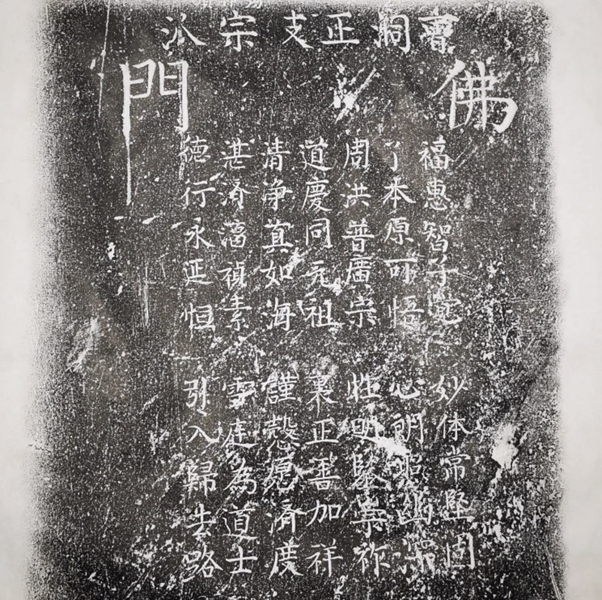 曹洞正支宗派
佛門
福惠智子覺
了本原可悟
周洪普廣崇
道慶同元祖
清净真如海
湛济福禎素
德行永延恒
妙体常堅固
心朗照幽深
性明鑒崇祚
衷正善加祥
謹慤愿济度
雪庭為道士
引入歸去路